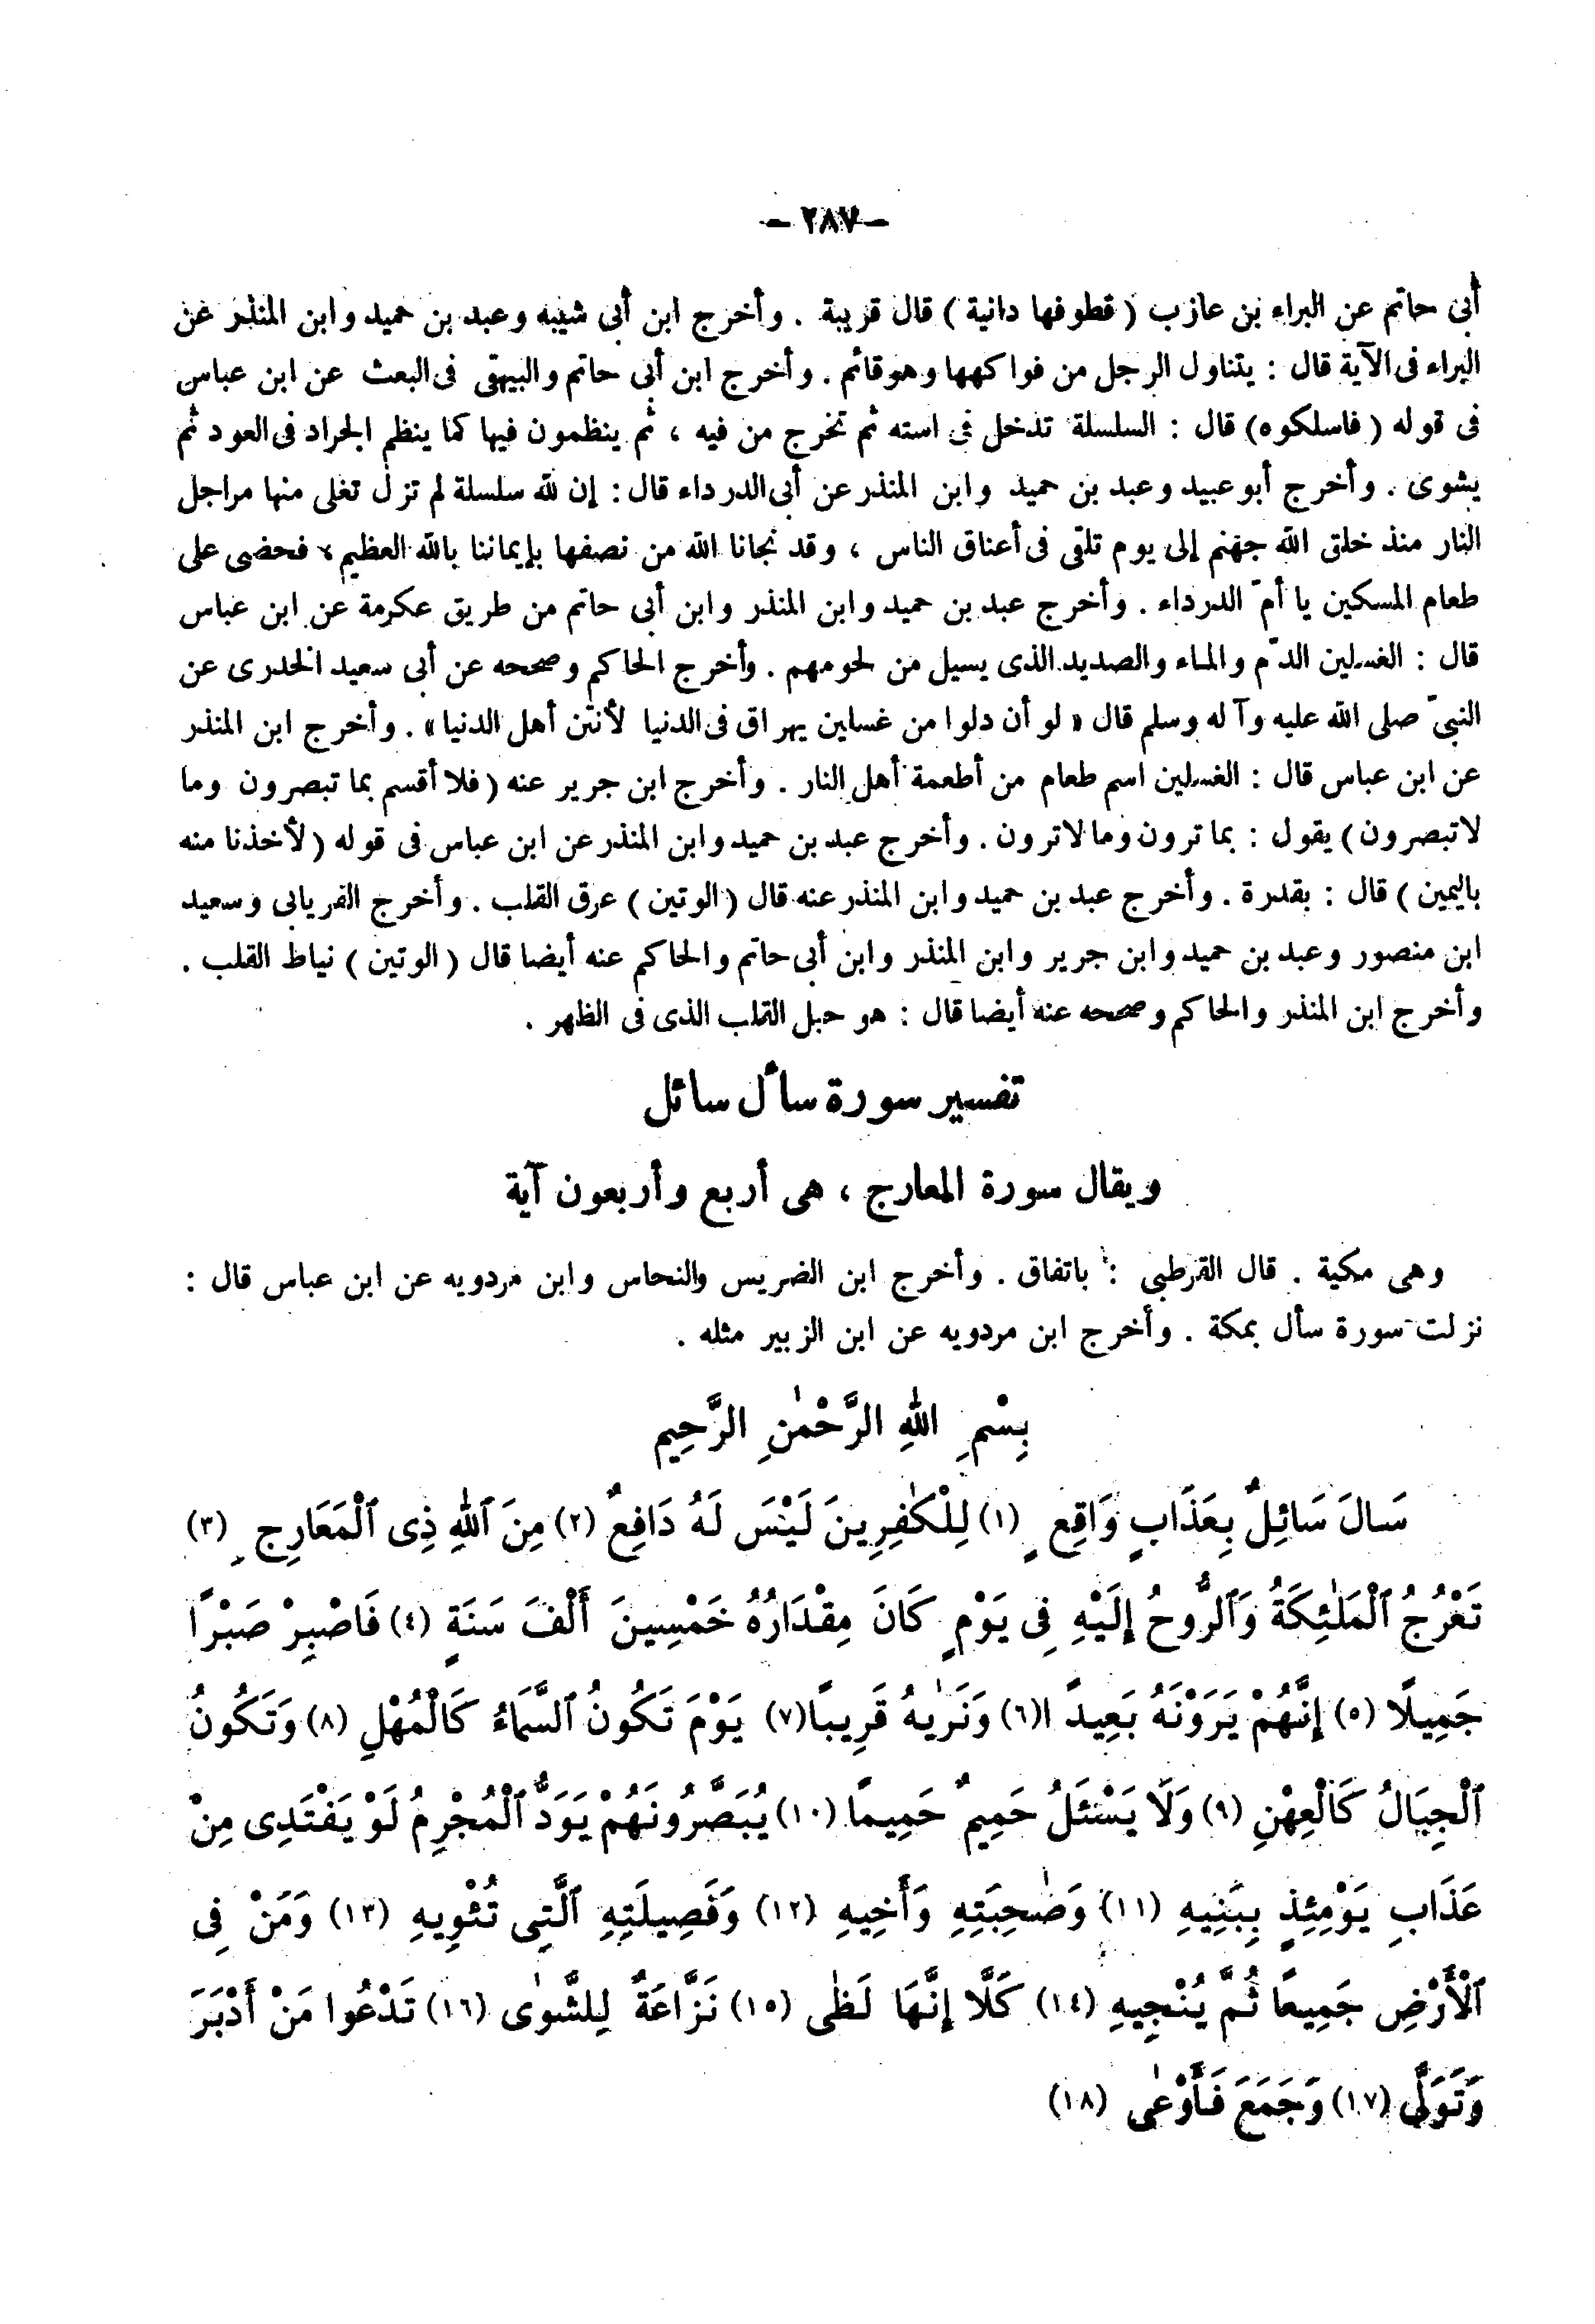 – ٢٨٧ –
أبى حاتم عن البراء بن عازب ( قطوفها دانية ) قال قريبة . وأخرج ابن أبى شيبه وعبد بن حميد وابن المنذر عن
البراء فى الآية قال : يتناول الرجل من فواكهها وهو قائم . وأخرج ابن أبى حاتم والبيهقى فى البعث عن ابن عباس
فى قوله ( فاسلكوه ) قال : السلسلة تدخل فى استه ثم تخرج من فيه ، ثم ينظمون فيها كما ينظم الجراد فى العود ثم
يشوى . وأخرج أبو عبيد وعبد بن حميد وابن المنذر عن أبى الدرداء قال : إن لله سلسلة لم تزل تغلى منها مراجل
النار منذ خلق الله جهنم إلى يوم تلقى فى أعناق الناس ، وقد نجانا الله من نصفها بإيماننا بالله العظيم ، فحضى على
طعام المسكين يا أمّ الدرداء . وأخرج عبد بن حميد وابن المنذر وابن أبى حاتم من طريق عكرمة عن ابن عباس
قال : الغسلين الدّم والماء والصديد الذى يسيل من لحومهم . وأخرج الحاكم وصححه عن أبى سعيد الخدرى عن
النبىّ صلى الله عليه وآله وسلم قال « لو أن دلوا من غسلين يهراق فى الدنيا لأنتن أهل الدنيا » . وأخرج ابن المنذر
عن ابن عباس قال : الغسلين اسم طعام من أطعمة أهل النار . وأخرج ابن جرير عنه ( فلا أقسم بما تبصرون وما
لا تبصرون ) يقول : بما ترون وما لا ترون . وأخرج عبد بن حميد وابن المنذر عن ابن عباس فى قوله ( لأخذنا منه
باليمين ) قال : بقدرة . وأخرج عبد بن حميد وابن المنذر عنه قال ( الوتين ) عرق القلب . وأخرج الفريابى وسعيد
ابن منصور وعبد بن حميد وابن جرير وابن المنذر وابن أبى حاتم والحاكم عنه أيضا قال ( الوتين ) نياط القلب .
وأخرج ابن المنذر والحاكم وصححه عنه أيضا قال : هو حبل القلب الذى فى الظهر .
تفسير سورة سأل سائل
ويقال سورة المعارج ، هى أربع وأربعون آية
وهى مكية . قال القرطبى : باتفاق . وأخرج ابن الضريس والنحاس وابن مردويه عن ابن عباس قال :
نزلت سورة سأل بمكة . وأخرج ابن مردويه عن ابن الزبير مثله .
بِسْمِ اللهِ الرَّحْمٰنِ الرَّحِيمِ
سَالَ سَائِلٌ بِعَذَابٍ وَاقِعٍ (١) لِلْكٰفِرِينَ لَيْسَ لَهُ دَافِعٌ (٢) مِنَ ٱللهِ ذِى ٱلْمَعَارِجِ (٣)
تَعْرُجُ ٱلْمَلٰئِكَةُ وَٱلرُّوحُ إِلَيْهِ فِى يَوْمٍ كَانَ مِقْدَارُهُ خَمْسِينَ أَلْفَ سَنَةٍ (٤) فَاصْبِرْ صَبْرًا
جَمِيلًا (٥) إِنَّهُمْ يَرَوْنَهُ بَعِيدًا (٦) وَنَرٰيهُ قَرِيبًا (٧) يَوْمَ تَكُونُ ٱلسَّمَاءُ كَالْمُهْلِ (٨) وَتَكُونُ
ٱلْجِبَالُ كَالْعِهْنِ (٩) وَلَا يَسْئَلُ حَمِيمٌ حَمِيمًا (١٠) يُبَصَّرُونَهُمْ يَوَدُّ ٱلْمُجْرِمُ لَوْ يَفْتَدِى مِنْ
عَذَابِ يَوْمِئِذٍ بِبَنِيهِ (١١) وَصٰحِبَتِهِ وَأَخِيهِ (١٢) وَفَصِيلَتِهِ ٱلَّتِى تُئْوِيهِ (١٣) وَمَنْ فِى
ٱلْأَرْضِ جَمِيعًا ثُمَّ يُنْجِيهِ (١٤) كَلَّا إِنَّهَا لَظٰى (١٥) نَزَّاعَةٌ لِلشَّوٰى (١٦) تَدْعُوا مَنْ أَدْبَرَ
وَتَوَلَّى (١٧) وَجَمَعَ فَأَوْعٰى (١٨)